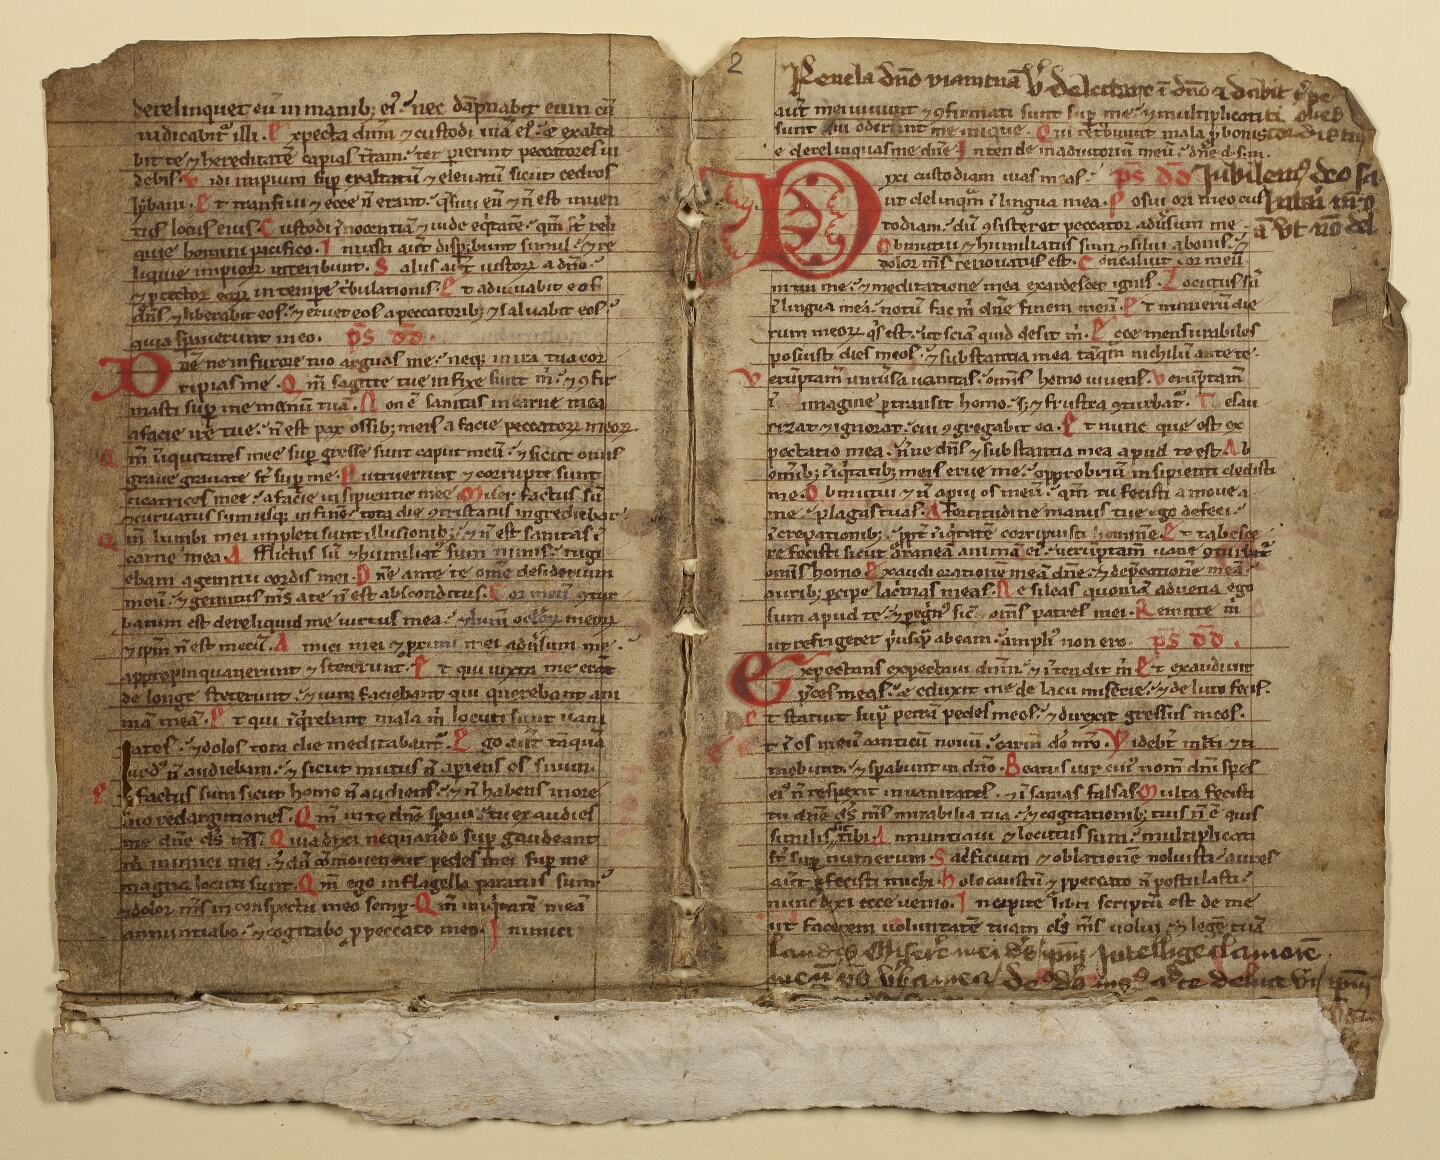 derelinquet eū in manib; ei᷒. nec dāpnabit eum cū
iudicabit᷑ illi. Expecta dnm ⁊ custodi uiā ei᷒. ⁊ exalta
bit te ⁊ hereditatē capias t̄ram. ter pierint peccatores ui
debis. Vidi impium sup̄ exaltatū ⁊ eleuatū sicut cedros
lybani. Et transiui ⁊ ecce n̄ erant. q̄siui eū ⁊ n̄ est inuen
tus locus eius. Custodi īnocentiā ⁊ uide eq̄tatē. qm̄ s̄t reli
quie homini pacifico. Iniusti aut̄ disp̄ibunt simul. ⁊ re
liquie impioꝝ interibunt. Salus aut̄ iustoꝝ a dn̄o.
⁊ ꝓtector eoꝝ in tempe t̄bulationis. Et adiuuabit eos
dn̄s ⁊ liberabit eos. ⁊ eruet eos a peccatorib; ⁊ saluabit eos.
quia sp̄auerunt in eo. ps̄ dd̄.
Dn̄e ne in furore tuo arguas me. neq; in ira tua cor
ripias me. Qm̄ sagitte tue infixe sunt m̄. ⁊ ꝯfir
masti sup̄ me manū tuā. Non ē sanitas in carne mea
a facie ire tue. n̄ est pax ossib; meis a facie peccatoꝝ meoꝝ
Qm̄ iniquitates mee sup̄gresse sunt caput meū. ⁊ sicut onus
graue grauate s̄t sup̄ me. Putruerunt ⁊ corrupte sunt
cicatrices mee. a facie insipientie mee. Miser factus sū
⁊ curuatus sum usq; in finē. tota die ꝯtristatus ingrediebar
Qm̄ lumbi mei impleti sunt illusionib;. ⁊ n̄ est sanitas ī
carne mea. Afflictus sū ⁊ humiliat᷒ sum nimis. rugi
ebam a gemitu cordis mei. Dn̄e ante te omē desiderium
meū. ⁊ gemitus ms̄ a te n̄ est absconditus. Cor meū ꝯtur
batum est dereliquid me uirtus mea. ⁊ lum̄ ocloꝝ meoꝝ
⁊ ipm̄ n̄ est mecū. Amici mei ⁊ ꝓximi mei adūsum me
appropinquauerunt ⁊ steterunt. Et qui iuxta me erāt
de longe steterunt. ⁊ uim faciebant qui querebant ani
mā meā. Et qui īq̄rebant mala m̄ locuti sunt uani
tates. ⁊ dolos tota die meditabant᷑. Ego aut̄ tāquā
surd᷒ n̄ audiebam. ⁊ sicut mutus n̄ apiens os suum.
Et factus sum sicut homo n̄ audiens. ⁊ n̄ habens in ore
suo redargutiones. Qm̄ in te dn̄e sp̄aui. tu exaudies
me dn̄e ds̄ ms̄. Quia dixi nequando sup̄ gaudeant
m̄ inimici mei. ⁊ dū cōmouent᷑ pedes mei sup̄ me
magna locuti sunt. Qm̄ ego in flagella paratus sum
⁊ dolor ms̄ in conspectu meo semp̄. Qm̄ iniq̄tatē meā
annuntiabo. ⁊ cogitabo ꝓ peccato meo. Inimici
2
Reuela dn̄o uiam tuā V̄ Delectare ī dn̄o ⁊ dabit
aut̄ mei uiuunt ⁊ ꝯfirmati sunt sup̄ me. ⁊ multiplicati
sunt qui oderunt me inique. Qui ret̄buunt mala ꝓ bonis
e derelinquas me dn̄e. Intende in adiutoriū meū. dn̄e d. s. m.
Dixi custodiam uias meas. ps̄ dd̄ Iubilem᷒ deo sa
ut delinquā ī lingua mea. Posui ori meo cus lutari n̄ro
todiam. dū ꝯsisteret peccator adūsum me.
Obmutui ⁊ humiliatus sum ⁊ silui a bonis. ⁊
dolor ms̄ renouatus est. Concaluit cor meū
intra me. ⁊ meditatione mea exardescet ignis. Locutus sū
ī lingua mea. notū fac m̄ dn̄e finem meū. Et numerū die
rum meoꝝ q̄s est. ut sciā quid desit m̄. Ecce mensurabiles
posuisti dies meos. ⁊ substantia mea tāq̄m nichilū ante te.
Verūptam̄ uniūsa uanitas. omīs homo uiuens. Verūptam̄
ī imagine ptransit homo. s; ⁊ frustra ꝯturbat᷑. Tesau
rizat ⁊ ignorat. cui ꝯgregabit ea. Et nunc que est ex
pectatio mea. n̄ne dn̄s ⁊ substantia mea apud te est. Ab
omīb; īiq̄tatib; meis erue me. opprobriū insipienti dedisti
me. Obmutui ⁊ n̄ apui os meū. qm̄ tu fecisti amoue a
me plagas tuas. A fortitudine manus tue ego defeci.
ī crepationib;. ꝓpt̄ īiq̄tatē corripuisti hominē. Et tabesce
re fecisti sicut araneā animā ei᷒. ueruptam uane
omīs homo. Exaudi orationē meā dn̄e. ⁊ dep̄cationē meā.
aurib; pcipe lac̄mas meas. Ne sileas quoniā aduena ego
sum apud te. ⁊ pegn᷒ sic̄ omīs patres mei. Remitte m̄
ut refrigerer p̄usq̄ abeam. ampli᷒ non ero. ps̄ dd̄.
Expectans expectaui dnm̄. ⁊ ītendit m̄. Et exaudiuit
p̄ces meas. ⁊ eduxit me de lacu miserie. ⁊ de luto fecis.
Et statuit sup̄ petrā pedes meos. ⁊ direxit gressus meos.
t ī os meū canticū nouū. carm̄ dō nr̄o. Videbt̄ m̄lti ⁊ ti
mebunt. ⁊ sp̄abunt in dn̄o. Beatus uir cui᷒ nom̄ dnī spes
ei᷒ n̄ respexit in uanitates. ⁊ ī sanias falsas. Multa fecisti
tu dn̄e ds̄ ms̄ mirabilia tua. ⁊ cogitationib; tuis n̄ ē quis
similis tibi. Annuntiaui ⁊ locutus sum. multiplicati
s̄t sup̄ numerum. Sacrificium ⁊ oblationē noluisti. aures
aut̄ pfecisti michi. Holocaustū ⁊ ꝓ peccato n̄ postulasti.
nunc dixi ecce uenio. In capite libri scriptū est de me
ut facerem uoluntatē tuam ds̄ ms̄ uolui. ⁊ legē tuā
Laudes Miserere mei ds̄ Intellige clamorē